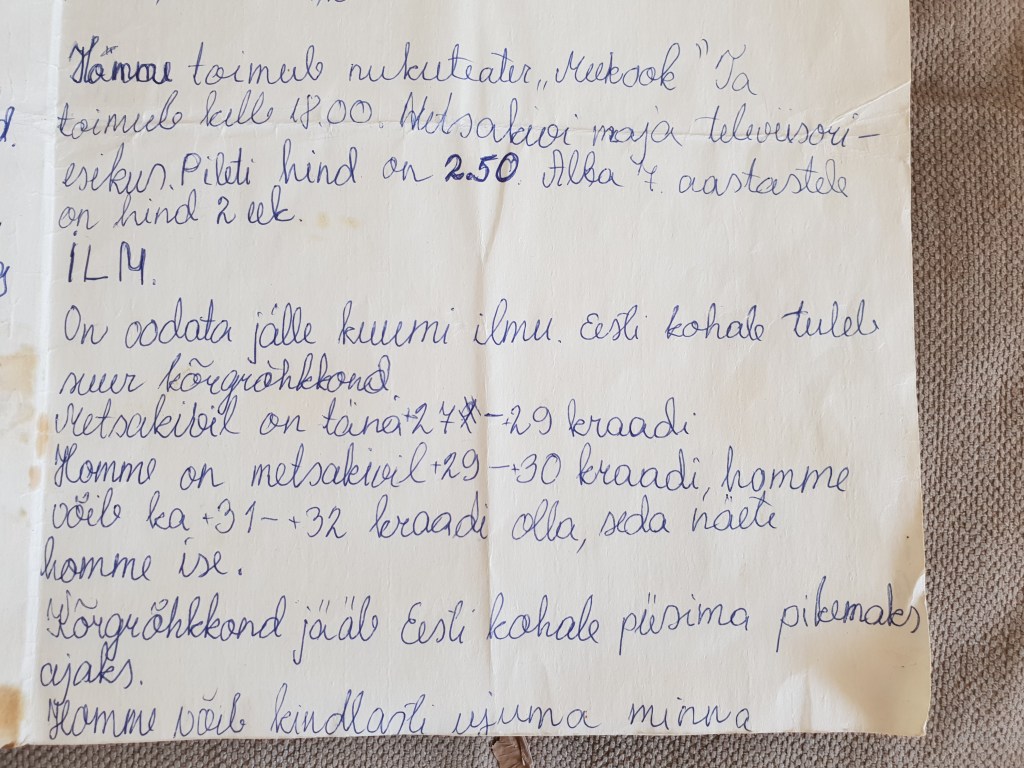 Homme toimub nukuteater „Meekook” Ta
toimub kell 18.00. Metsakivi maja televiisori-
esikus. Pileti hind on 2.50. Alla 7. aastastele
on hind 2 eek.
ILM.
On oodata jälle kuumi ilmu. Eesti kohale tuleb
suur kõrgrõhkkond.
Metsakivil on täna +27 - +29 kraadi
Homme on metsakivil +29 - +30 kraadi, homme
võib ka +31 - +32 kraadi olla, seda näete
homme ise.
Kõrgrõhkkond jääb Eesti kohale püsima pikemaks
ajaks.
Homme võib kindlasti ujuma minna